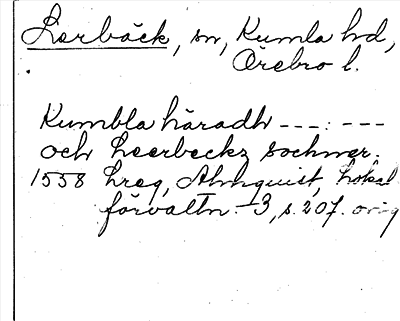 Lerbäck, sn, Kumla hd,
Örebro l.
Kumbla häradh ---:---
och Leerbeckz sochner.
1558 hreg, Almquist, Lokal
förvaltn. 3, s. 207. orig